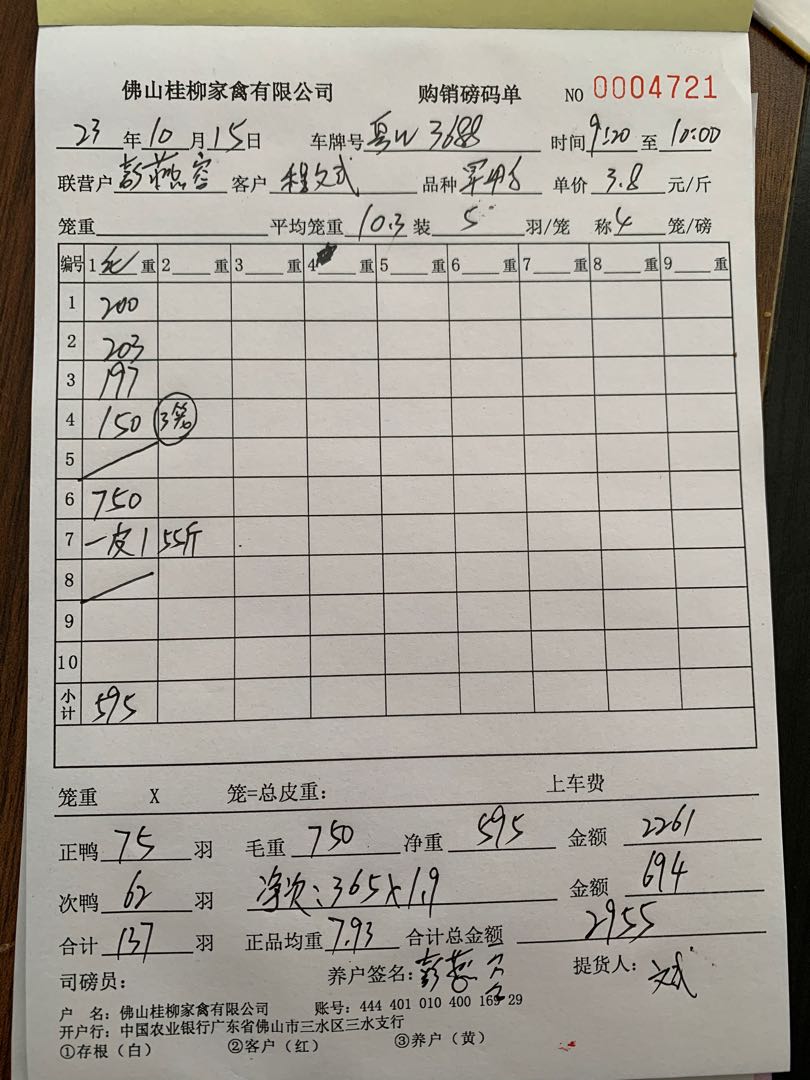 佛山桂柳家禽有限公司 购销磅码单 NO 0004721
23年10月15日 车牌号粤W 3688 时间9:20至10:00
联营户 客户程文式 品种 单价3.8元/斤
笼重 平均笼重10.3装5羽/笼 称4笼/磅
编号 1毛重 2重 3重 4重 5重 6重 7重 8重 9重
1 200
2 203
3 197
4 150 3笼
5
6 750
7 一皮155斤
8
9
10
小计 595
笼重 X 笼=总皮重: 上车费
正鸭75羽 毛重750 净重595 金额2261
次鸭62羽 净次:365x1.9 金额694
合计137羽 正品均重7.93 合计总金额2955
司磅员: 养户签名: 提货人:文式
户 名:佛山桂柳家禽有限公司 账号:444 401 010 400 165 29
开户行:中国农业银行广东省佛山市三水区三水支行
①存根(白) ②客户(红) ③养户(黄)